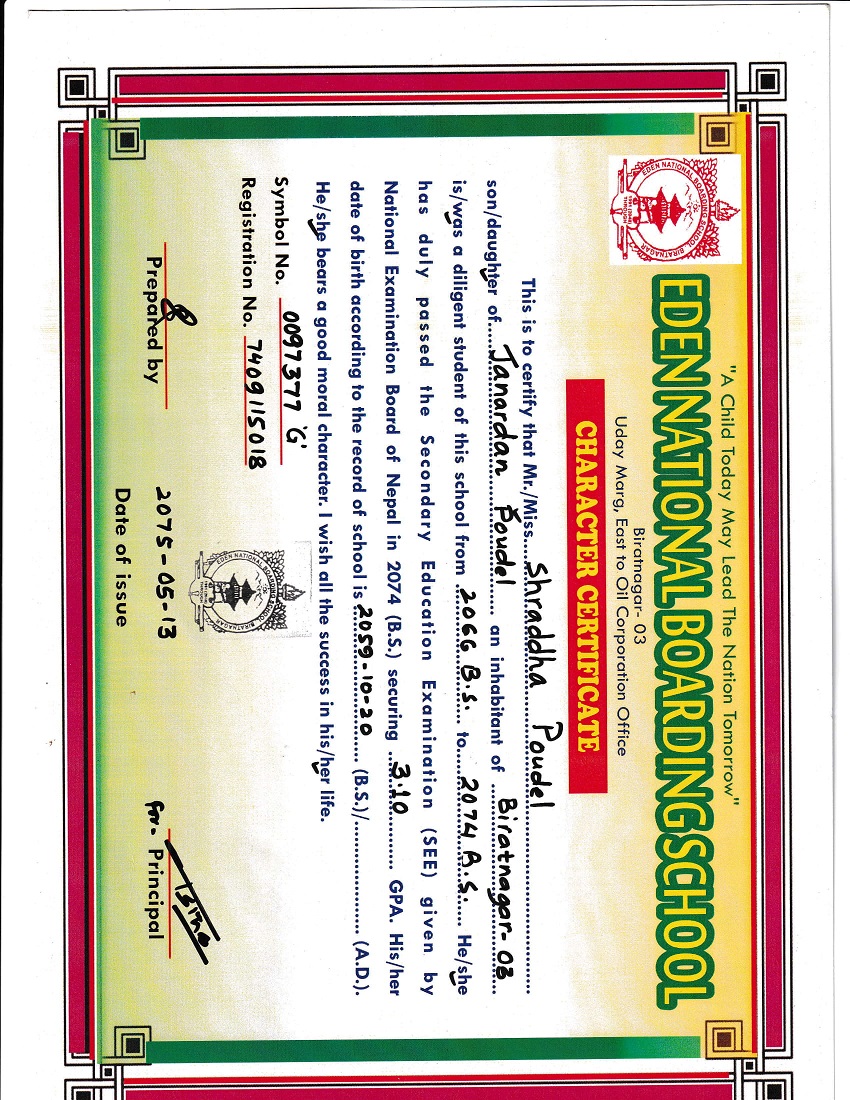 "A Child Today May Lead The Nation Tomorrow"
EDEN NATIONAL BOARDING SCHOOL
Biratnagar- 03
Uday Marg, East to Oil Corporation Office
CHARACTER CERTIFICATE
This is to certify that Mr./Miss. Shraddha Poudel
son/daughter of Janardan Poudel an inhabitant of Biratnagar- 03
is/was a diligent student of this school from 2066 B.S. to 2074 B.S. He/she
has duly passed the Secondary Education Examination (SEE) given by
National Examination Board of Nepal in 2074 (B.S.) securing 3.10 GPA. His/her
date of birth according to the record of school is 2059-10-20 (B.S.)/ (A.D.).
He/she bears a good moral character. I wish all the success in his/her life.
Symbol No. 0097377 'G'
Registration No. 7409115018
EDEN NATIONAL BOARDING SCHOOL BIRATNAGAR
2075-05-13
for-
Prepared by
Date of issue
Principal